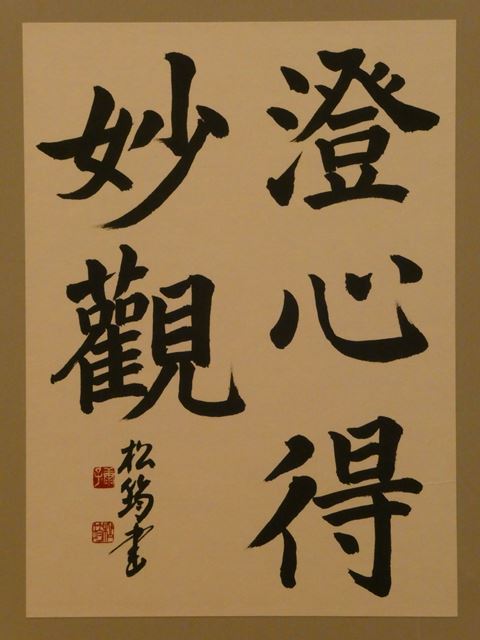 澄心得
妙觀
松筠書